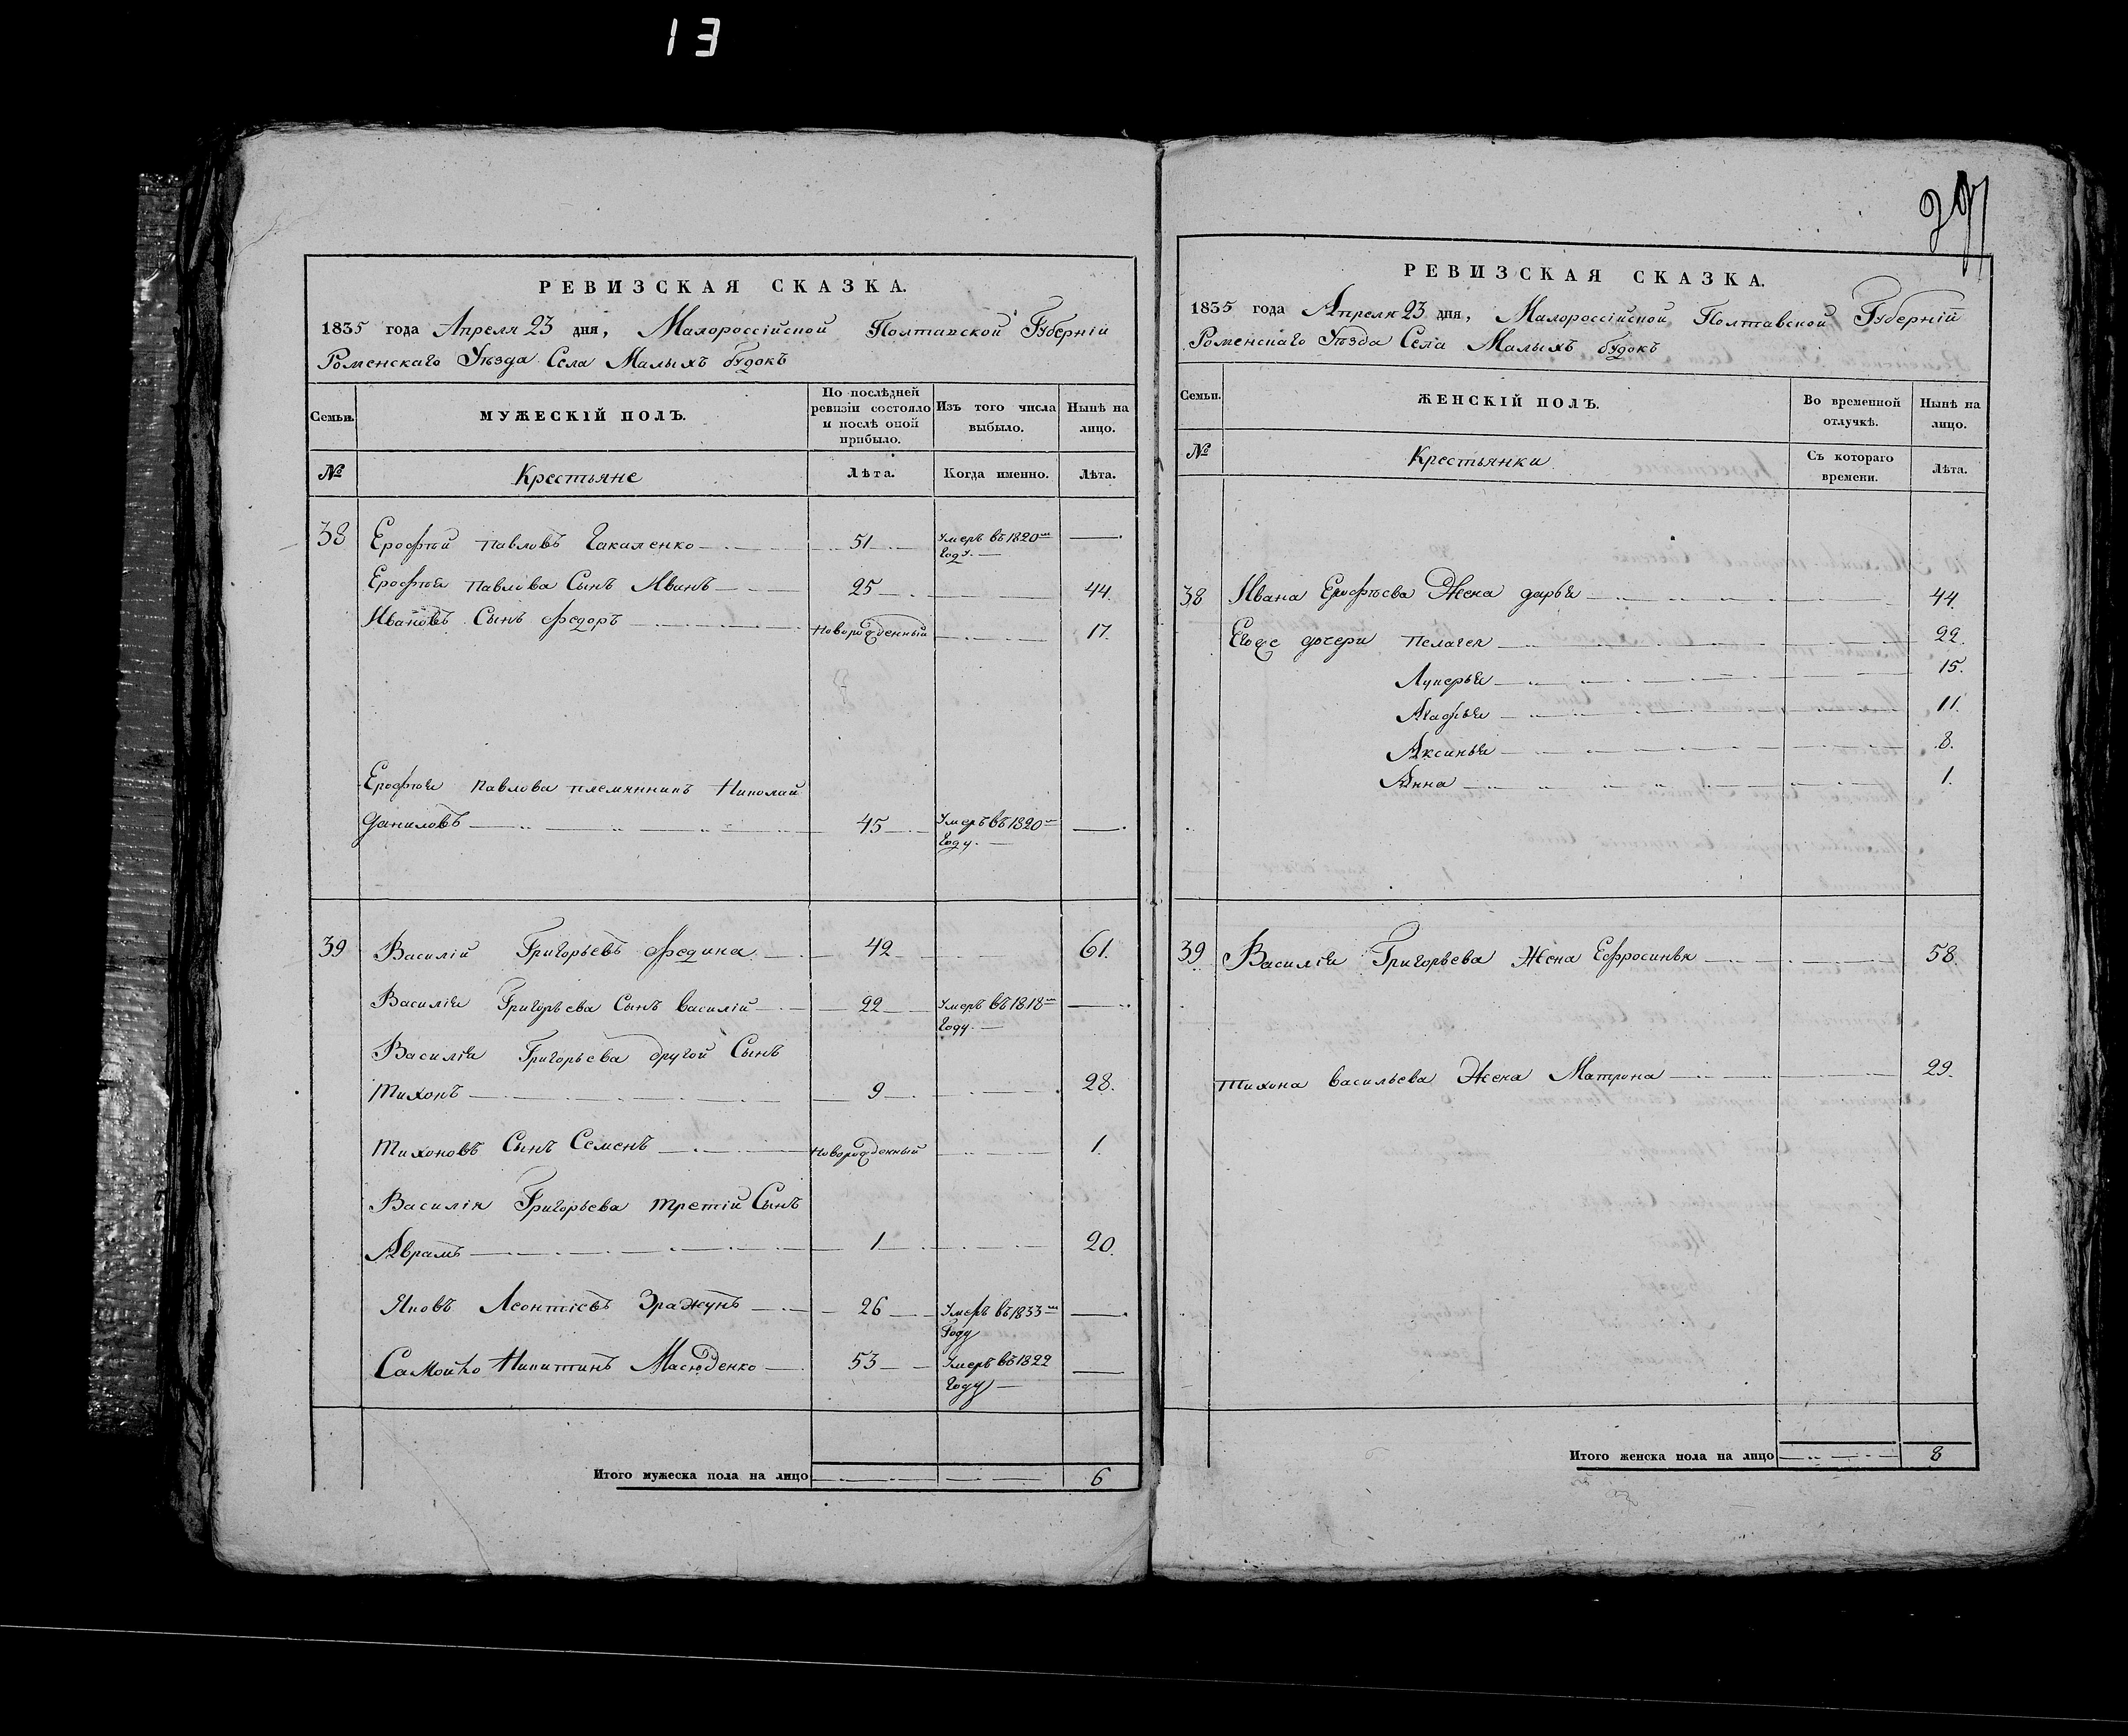 13
РЕВИЗСКАЯ СКАЗКА.
1835 года Апреля 23 дня, Малороссійской Полтавской Губерніи
Роменскаго Уѣзда Села Малыхъ будокъ
Семьи.
МУЖЕСКІЙ ПОЛЪ.
По послѣдней ревизіи состояло и послѣ оной прибыло.
Изъ того числа выбыло.
Нынѣ на лицо.
№ Крестьяне Лѣта. Когда именно. Лѣта.
38 Ерофѣй павловъ 51 умеръ въ 1820м году. —
Ерофѣя павлова Сынъ Иванъ 25 44.
Ивановъ Сынъ Федоръ новорожденный 17.
Ерофѣя павлова племянникъ Николай
Даниловъ 45 умеръ въ 1820м году. —
39 Василій Григорьевъ Федина 42 61.
Василія Григорьева Сынъ василій 22 умеръ въ 1818м году. —
Василія Григорьева другой Сынъ
тихонъ 9 28.
тихоновъ Сынъ Семенъ новорожденный 1.
Василія Григорьева третій Сынъ
Аврамъ 1 20.
Яковъ Леонтіевъ Зражунъ 26 умеръ въ 1833м году —
Самойло Никитинъ 53 умеръ въ 1822 году —
Итого мужеска пола на лицо 6
РЕВИЗСКАЯ СКАЗКА.
1835 года Апреля 23 дня, Малороссійской Полтавской Губерніи
Роменскаго Уѣзда Села Малыхъ будокъ
Семьи.
ЖЕНСКІЙ ПОЛЪ.
Во временной отлучкѣ.
Нынѣ на лицо.
№ Крестьянки Съ котораго времени. Лѣта.
38 Ивана Ерофѣева Жена дарья 44.
Егоже дочери пелагея 22.
Лукерья 15.
Агафья 11.
Аксинья 8.
Анна 1.
39 Василія Григорьева Жена Ефросинья 58.
тихона васильева Жена Матрона 29.
Итого женска пола на лицо 8